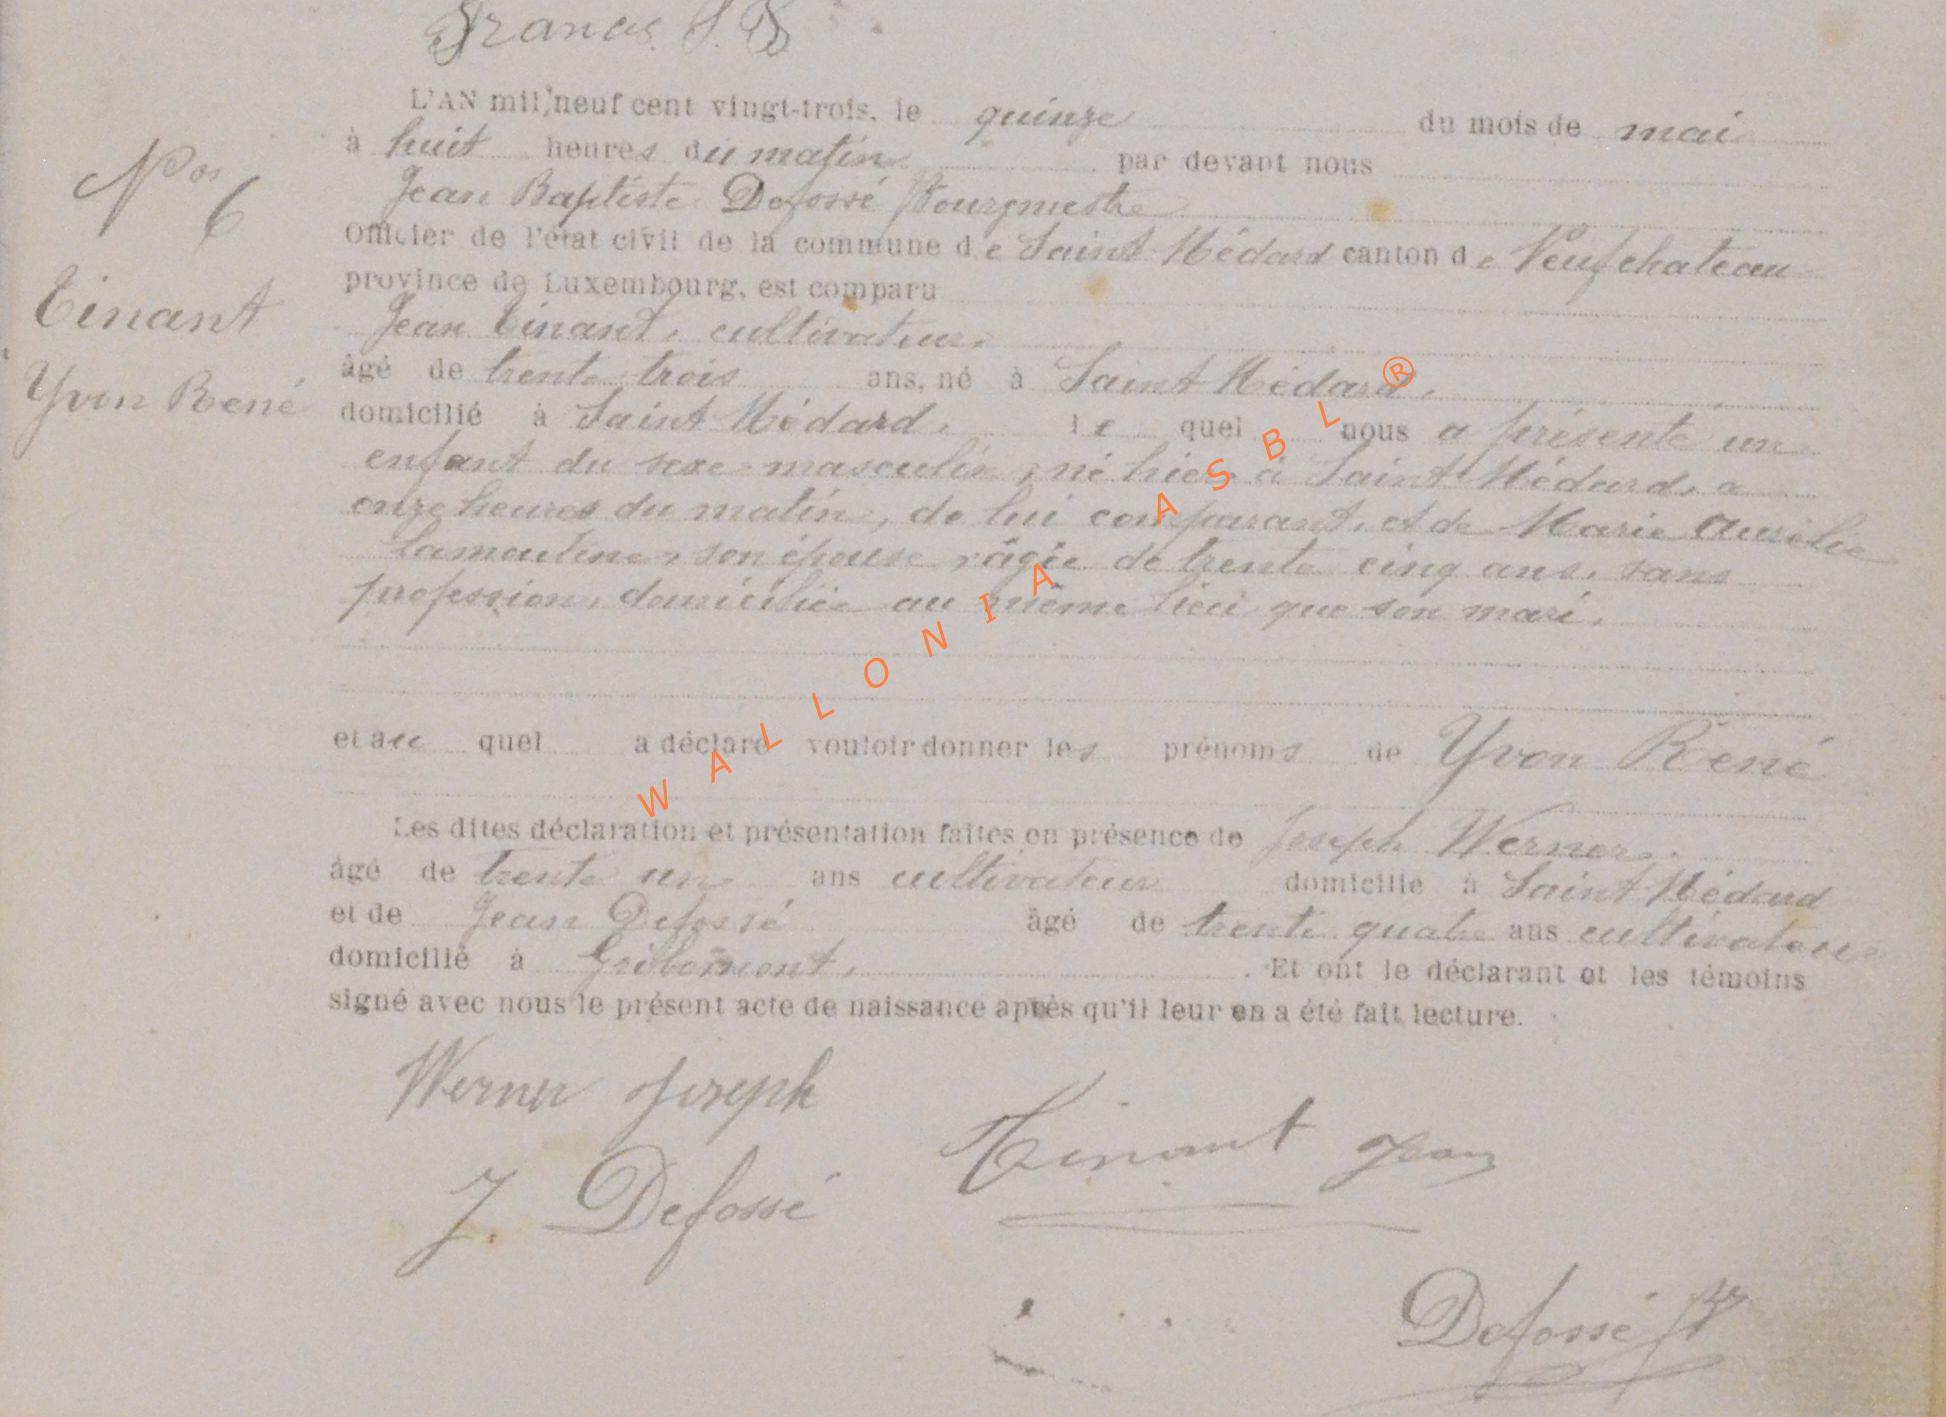 Francis J. B.
L'AN mil neuf cent vingt-trois, le quinze du mois de mai
à huit heures du matin par devant nous
Jean Baptiste Defossé Bourgmestre
Officier de l'état civil de la commune de Saint Médard canton de Neufchateau
province de Luxembourg, est comparu
Jean Tinant, cultivateur,
âgé de trente trois ans, né à Saint Médard,
domicilié à Saint Médard, le quel nous a présenté un
enfant du sexe masculin, né hier à Saint Médard, a
onze heures du matin, de lui comparant, et de Marie Aurélie
Lamouline, son épouse, âgée de trente cinq ans, sans
profession, domiciliée au même lieu que son mari.
et au quel a déclaré vouloir donner les prénoms de Yvon René
Les dites déclaration et présentation faites en présence de Joseph Werner,
âgé de trente un ans cultivateur domicilié à Saint Médard
et de Jean Defossé âgé de trente quatre ans cultivateur
domicilié à Gribomont, . Et ont le déclarant et les témoins
signé avec nous le présent acte de naissance après qu'il leur en a été fait lecture.
Nos 6
Tinant
Yvon René
Werner Joseph
Tinant Jean
J. Defossé
Defossé JB
WALLONIA ASBL ®